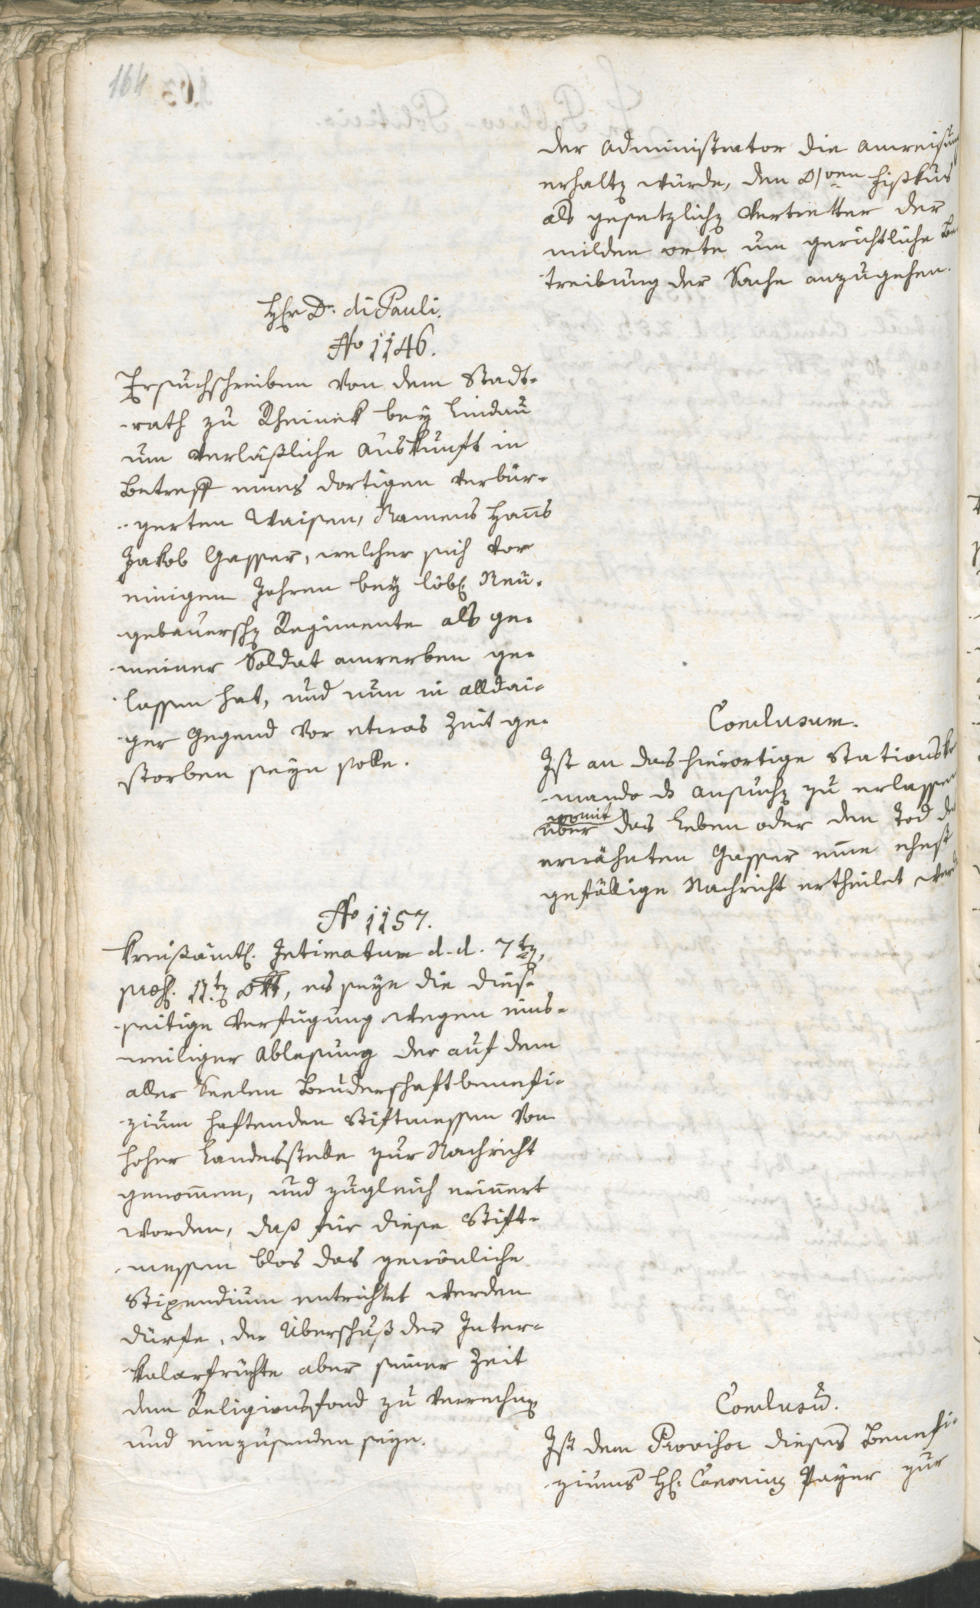 164
der Administrator die Anweisung
erhalte würde, den Fiskus
als gesetzliche Vertretter der
milden orte um gerichtliche Be
treibung der Sache anzugehen.
H Hr Dr. di Pauli.
No 1146.
Ersuchschreiben von dem Stadt-
rath zu Rheinek bey Lindau
um verläßliche Auskunft in
Betreff eines dortigen verbür-
gerten Waisen, Namens Hans
Jakob Gasser, welcher sich vor
einigen Jahren bey löbl. Neu-
gebauersche Regimente als ge-
meiner Soldat anwerben ge-
lassen hat, und nun in alldai-
ger Gegend vor etwas Zeit ge-
storben seyn solle.
Conclusum.
Ist an das hierortige Stationsko
mando d Ansuche zu erlassen
womit
über das Leben oder den Tod de
erwähnten Gasser eine ehest
gefällige Nachricht ertheilet werde
No 1157.
Kreisämtl. Intimatum d. d. 7t,
praes. 11t, es seye die dies-
seitige Verfügung wegen eins-
weiliger Ablesung der auf dem
aller Seelen Bruderschaftbenefi-
zium haftenden Stiftmessen von
hoher Landesstelle zur Nachricht
genommen, und zugleich erinnert
worden, daß für diese Stift-
messen blos das gewönliche
Stipendium entrichtet werden
dürfe, der Überschuß der Inter-
kalarfrüchte aber seiner Zeit
dem Religionsfond zu verrechne
und einzusenden seye.
Conclusu.
Ist dem Provisor dieses Benefi-
ziums H. Canonius Payer zur